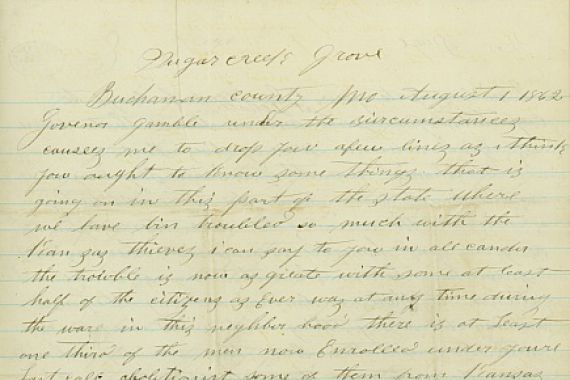 Sugar creek Grove
Buchanan county Mo August 1 1862
Govenor Gamble under the circumstances
causes me to drop you afew lines as i think
you aught to know some things that is
going on in this part of the state where
we have bin troubled so much with the
Kansas thieves i can say to you in all candor
the trouble is now as greate with some at least
half of the citizens as Ever was at any time during
the ware in this neighber hood there is at Least
one third of the men now Enrolled under youre
Last call abolitionist some of them from Kansas